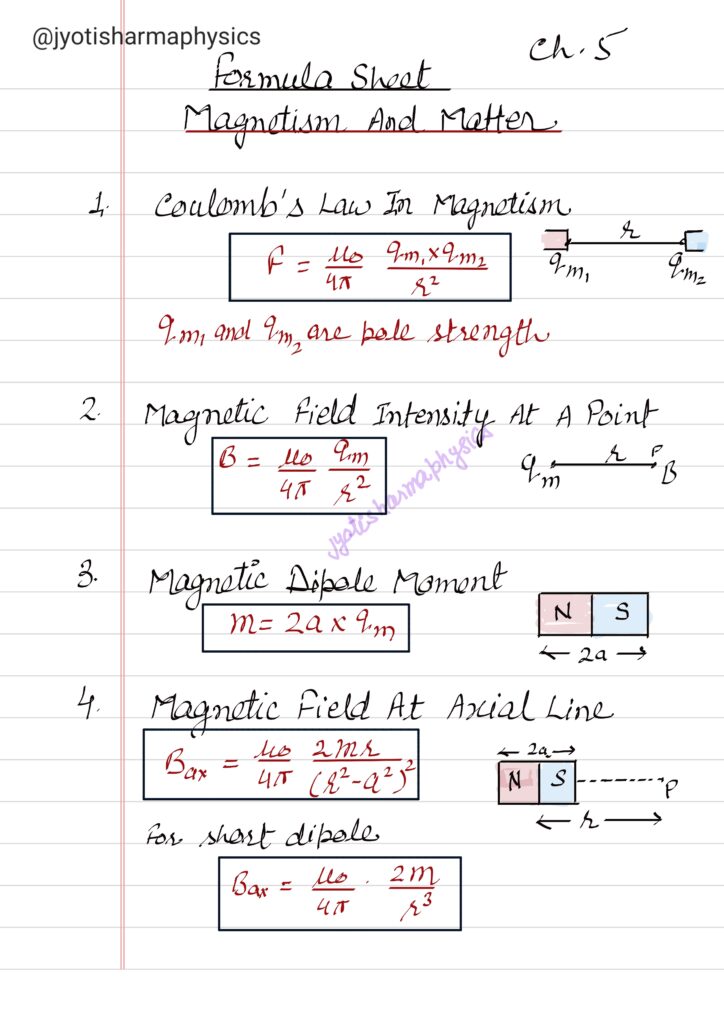 @jyotisharmaphysics
Ch. 5
Formula Sheet
Magnetism And Matter
1. Coulomb's Law In Magnetism
F = μ₀/4π qm₁ × qm₂/r²
r
qm₁ qm₂
qm₁ and qm₂ are pole strength
2. Magnetic Field Intensity At A Point
B = μ₀/4π qm/r²
qm r P B
jyotisharmaphysics
3. Magnetic Dipole Moment
m = 2a × qm
N S
← 2a →
4. Magnetic Field At Axial Line
Bax = μ₀/4π 2mr/(r²-a²)²
← 2a →
N S P
← r →
For short dipole
Bax = μ₀/4π · 2m/r³